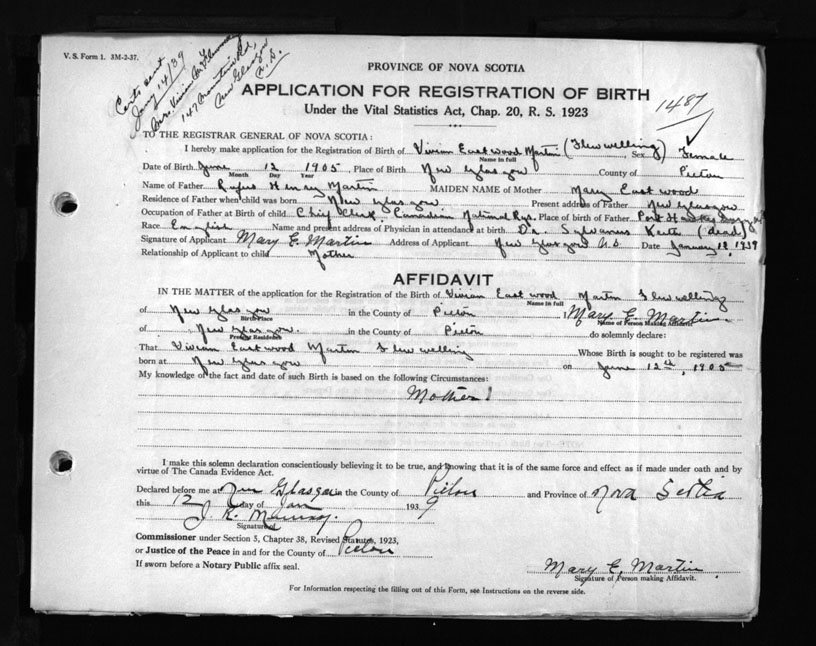 V. S. Form 1. 3M-2-37.
Certs sent
Jany 14/39
Mrs. Vivian M. Flewwelling
147 Mountain Rd,
New Glasgow
N.S.
PROVINCE OF NOVA SCOTIA
APPLICATION FOR REGISTRATION OF BIRTH
Under the Vital Statistics Act, Chap. 20, R. S. 1923
1487
TO THE REGISTRAR GENERAL OF NOVA SCOTIA:
I hereby make application for the Registration of Birth of Vivian Eastwood Martin (Flewwelling) Sex Female
Name in full
Date of Birth June 12 1905, Place of Birth New Glasgow County of Pictou
Month Day Year
Name of Father Rufus Henry Martin MAIDEN NAME of Mother Mary Eastwood
Residence of Father when child was born New Glasgow Present address of Father New Glasgow
Occupation of Father at Birth of child Chief Clerk Canadian National Rys. Place of birth of Father Port Hawkesbury
Race English Name and present address of Physician in attendance at birth Dr. Sylvanus Keith (dead)
Signature of Applicant Mary E. Martin Address of Applicant New Glasgow N.S Date January 12, 1939
Relationship of Applicant to child Mother
AFFIDAVIT
IN THE MATTER of the application for the Registration of the Birth of Vivian Eastwood Martin Flewwelling
Name in full
of New Glasgow in the County of Pictou I Mary E. Martin
Birth Place Name of Person Making Affidavit
of New Glasgow. in the County of Pictou do solemnly declare:
Present Residence
That Vivian Eastwood Martin Flewwelling Whose Birth is sought to be registered was
born at New Glasgow on June 12th, 1905
My knowledge of the fact and date of such Birth is based on the following Circumstances:
Mother
I make this solemn declaration conscientiously believing it to be true, and knowing that it is of the same force and effect as if made under oath and by
virtue of The Canada Evidence Act.
Declared before me at New Glasgow in the County of Pictou and Province of Nova Scotia
this 12 day of Jan 1939
J. R. Murray.
Signature of
Commissioner under Section 5, Chapter 38, Revised Statutes, 1923,
or Justice of the Peace in and for the County of Pictou
If sworn before a Notary Public affix seal.
Mary E. Martin
Signature of Person making Affidavit.
For Information respecting the filling out of this Form, see Instructions on the reverse side.